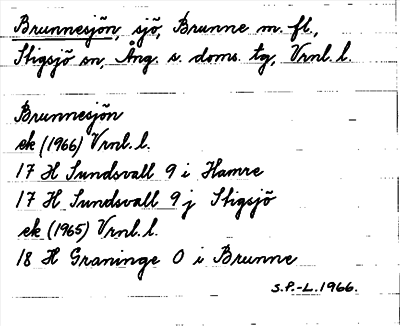 Brunnesjön, sjö, Brunne m. fl.,
Stigsjö sn, Ång. s. doms. tg, Vrnl. l.
Brunnesjön
ek (1966) Vrnl. l.
17 H Sundsvall 9 i Hamre
17 H Sundsvall 9 j Stigsjö
ek (1965) Vrnl. l.
18 H Graninge 0 i Brunne
S.P.-L. 1966.